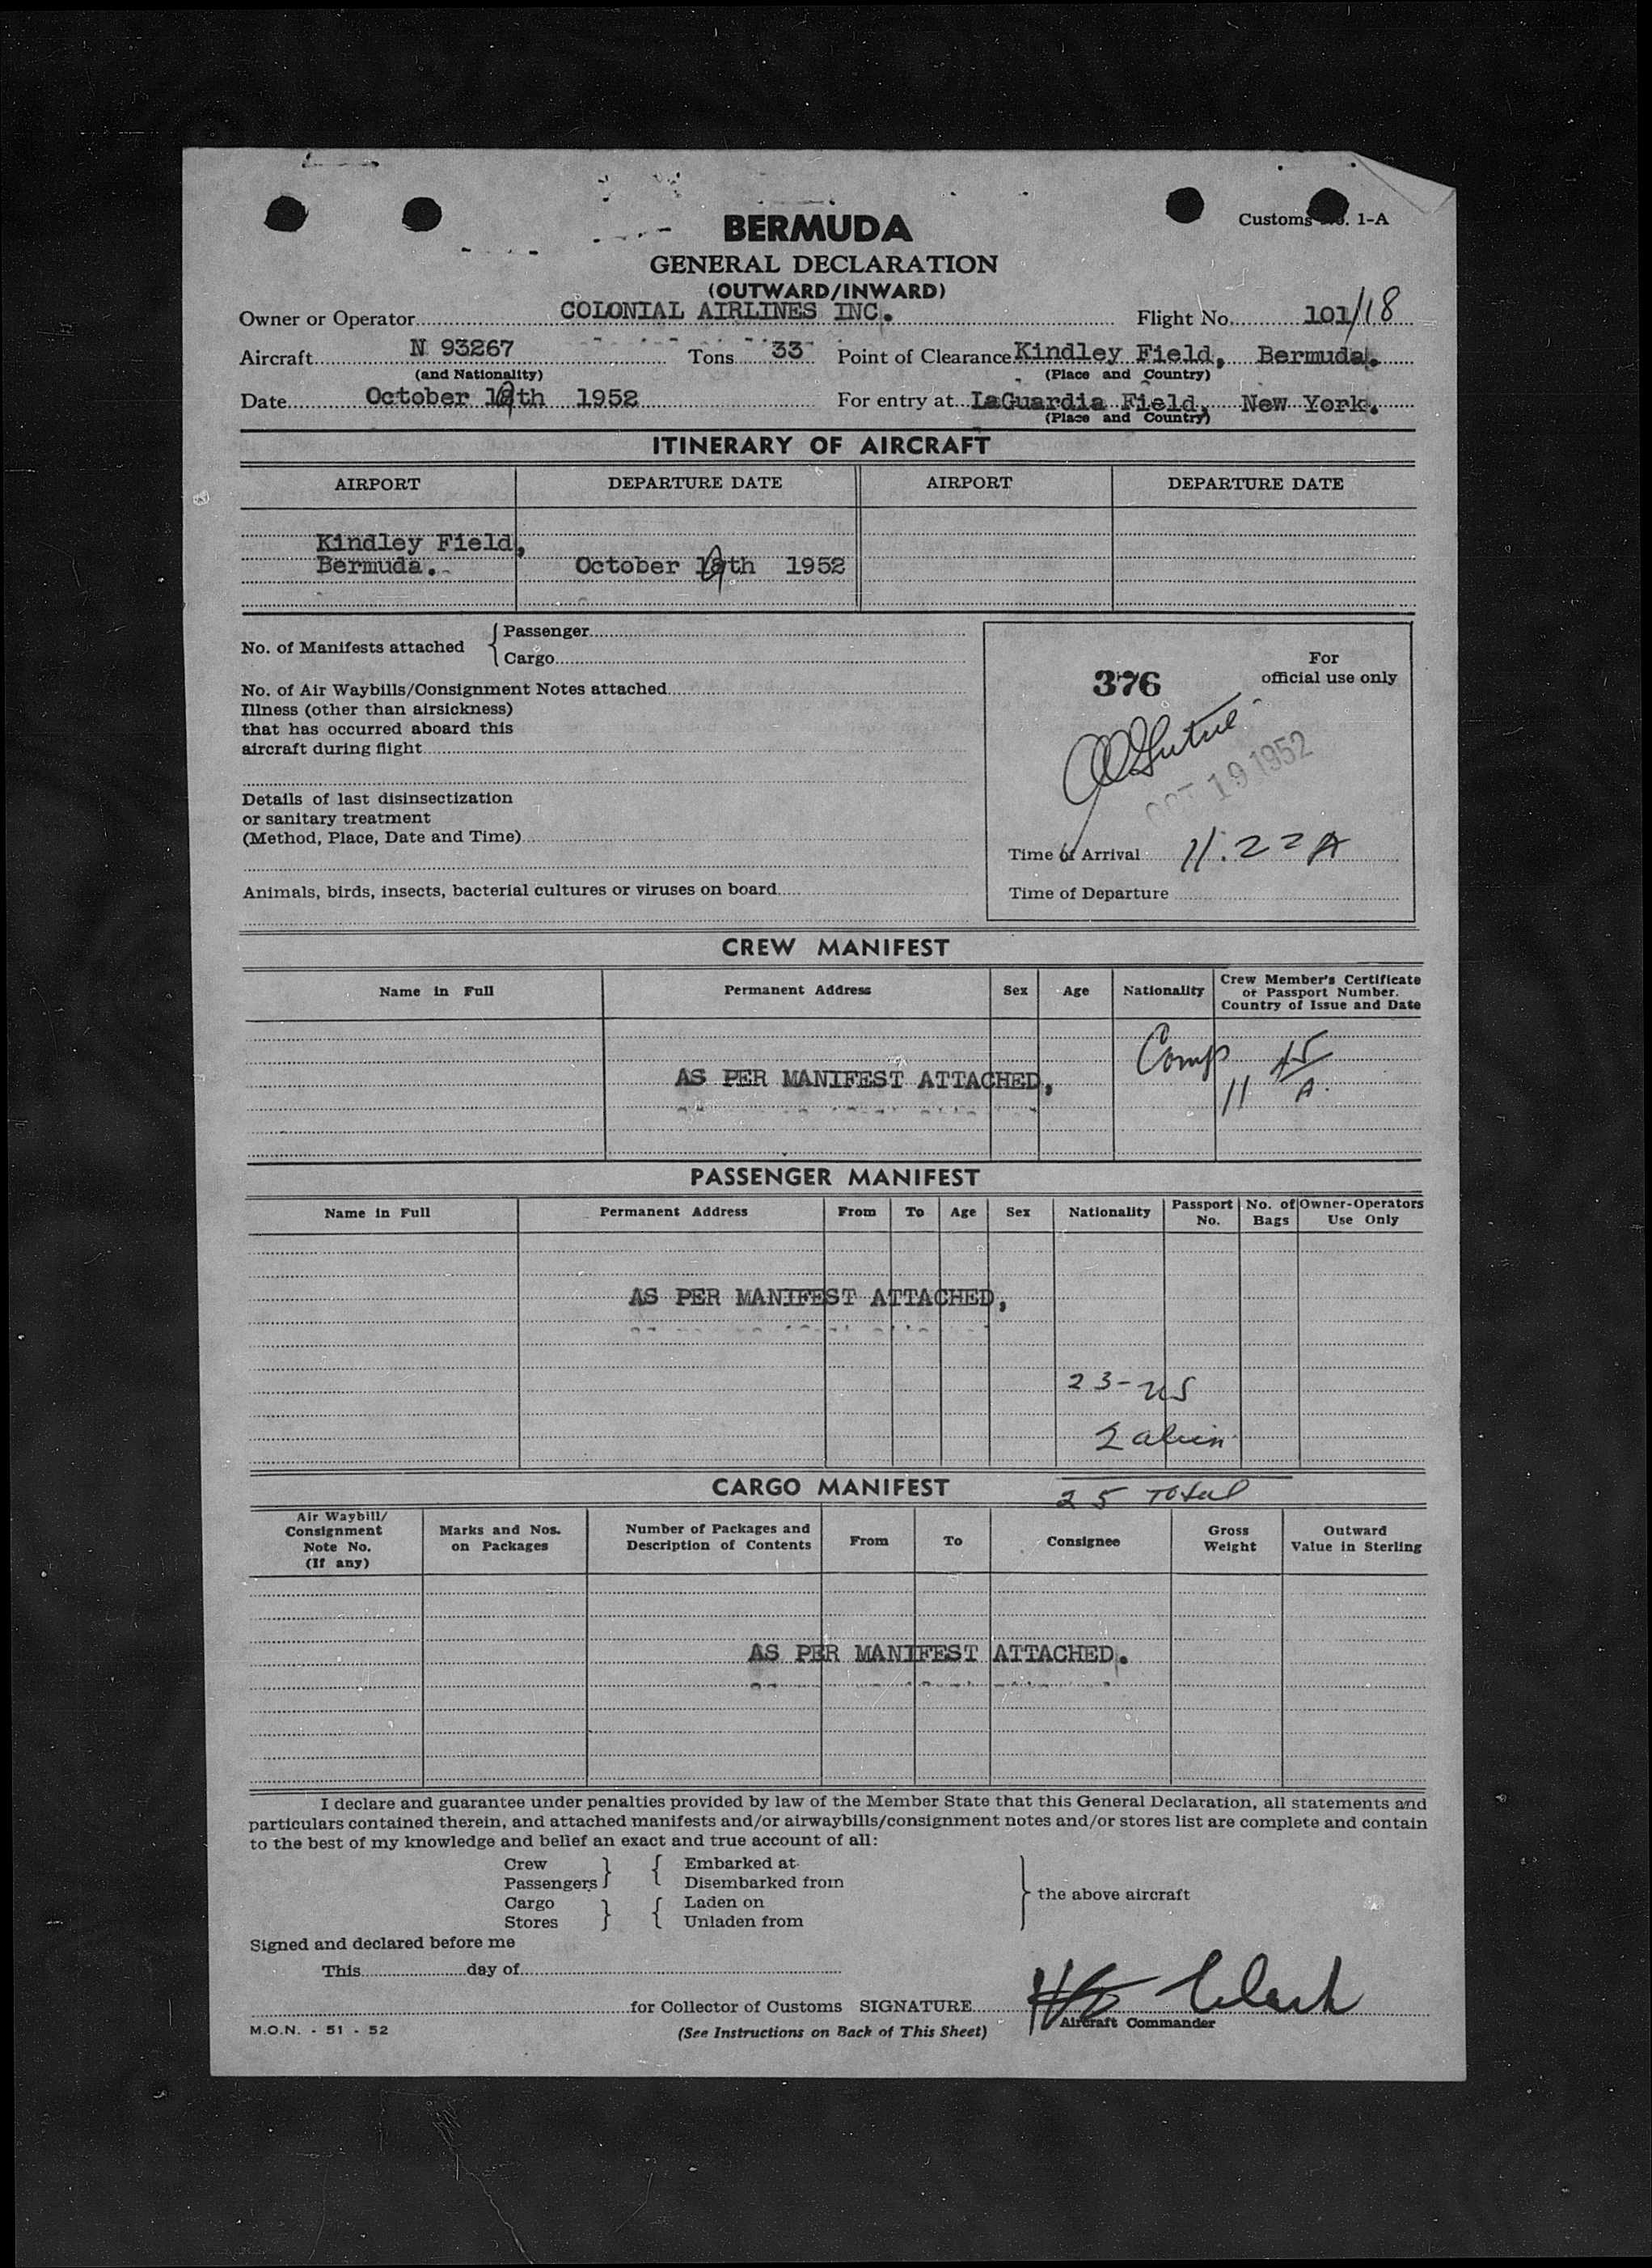 BERMUDA
Customs No. 1-A
GENERAL DECLARATION
(OUTWARD/INWARD)
Owner or Operator COLONIAL AIRLINES INC. Flight No. 101/18
Aircraft N 93267 Tons 33 Point of Clearance Kindley Field, Bermuda.
(and Nationality) (Place and Country)
Date October 19th 1952 For entry at LaGuardia Field, New York.
(Place and Country)
ITINERARY OF AIRCRAFT
AIRPORT DEPARTURE DATE AIRPORT DEPARTURE DATE
Kindley Field,
Bermuda. October 19th 1952
No. of Manifests attached { Passenger
Cargo
No. of Air Waybills/Consignment Notes attached
Illness (other than airsickness)
that has occurred aboard this
aircraft during flight
Details of last disinsectization
or sanitary treatment
(Method, Place, Date and Time)
Animals, birds, insects, bacterial cultures or viruses on board
For
376 official use only
OCT 19 1952
Time of Arrival 11:22 A
Time of Departure
CREW MANIFEST
Name in Full Permanent Address Sex Age Nationality Crew Member's Certificate
or Passport Number.
Country of Issue and Date
Comp 11 45 A.
AS PER MANIFEST ATTACHED,
PASSENGER MANIFEST
Name in Full Permanent Address From To Age Sex Nationality Passport No. No. of Bags Owner-Operators Use Only
AS PER MANIFEST ATTACHED,
23-US
2 alien
25 Total
CARGO MANIFEST
Air Waybill/
Consignment
Note No.
(If any) Marks and Nos.
on Packages Number of Packages and
Description of Contents From To Consignee Gross
Weight Outward
Value in Sterling
AS PER MANIFEST ATTACHED.
I declare and guarantee under penalties provided by law of the Member State that this General Declaration, all statements and
particulars contained therein, and attached manifests and/or airwaybills/consignment notes and/or stores list are complete and contain
to the best of my knowledge and belief an exact and true account of all:
Crew } { Embarked at
Passengers Disembarked from
Cargo } { Laden on
Stores Unladen from
} the above aircraft
Signed and declared before me
This day of
for Collector of Customs SIGNATURE Clark
Aircraft Commander
M.O.N. - 51 - 52
(See Instructions on Back of This Sheet)